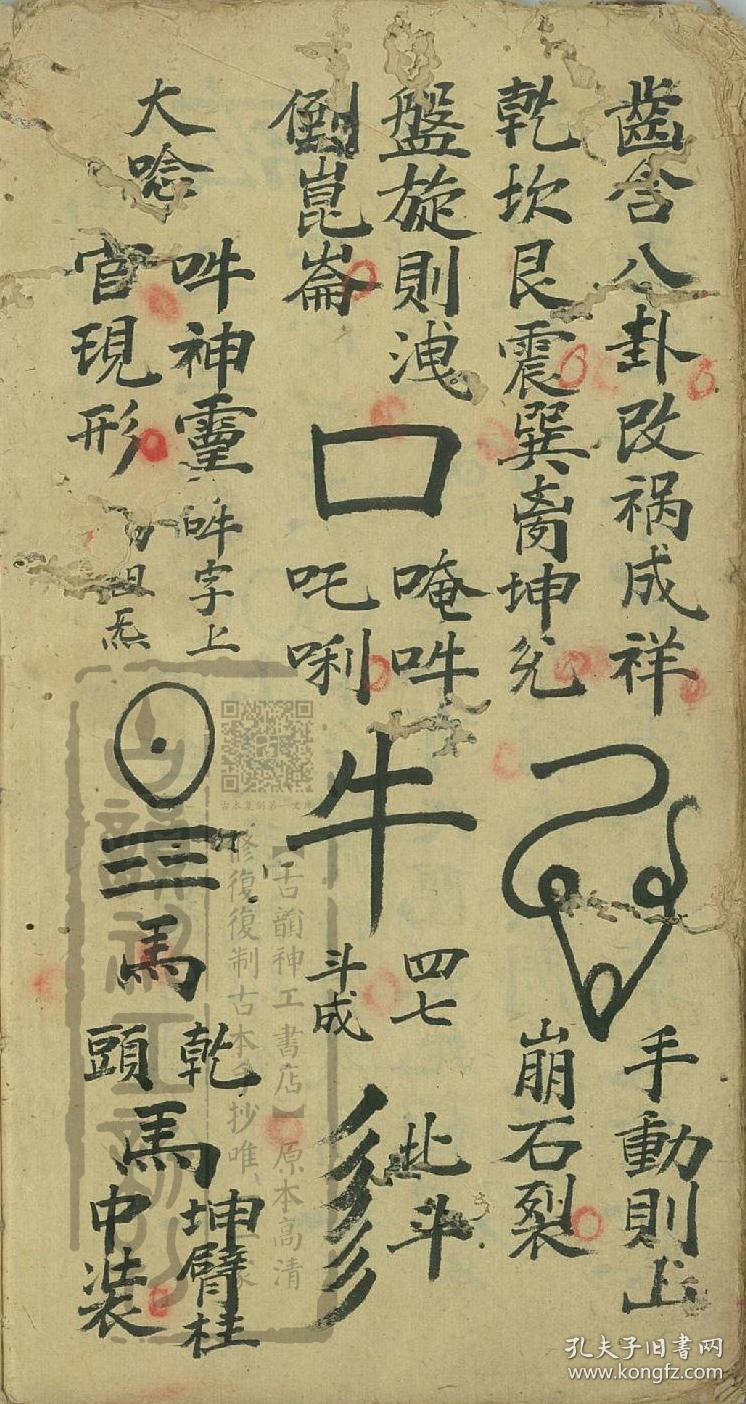 齒含八卦改禍成祥
乾坎艮震巽离坤兑
手動則山
崩石裂
盤旋則洩
倒崑崙
口
唵吽
吒唎
牛
四七
斗成
北斗
大唸
吽神靈
官現形
吽字上
馬
乾
頭
馬
坤臂柱
中裝
【古韻神工書店】原本高清
修復復制古本手抄唯
孔夫子旧书网
www.kongfz.com